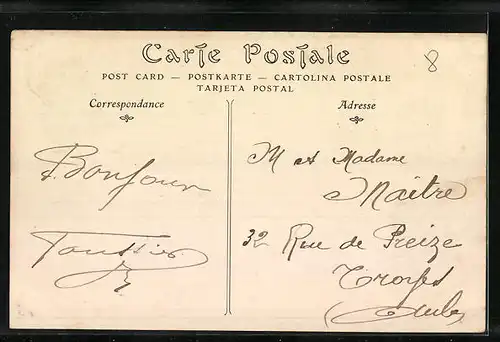 Carte Postale
POST CARD — POSTKARTE — CARTOLINA POSTALE
TARJETA POSTAL
Correspondance
Adresse
8
Bonjour
M et Madame
Maitre
32 Rue de Preize
Troyes
(Aube)